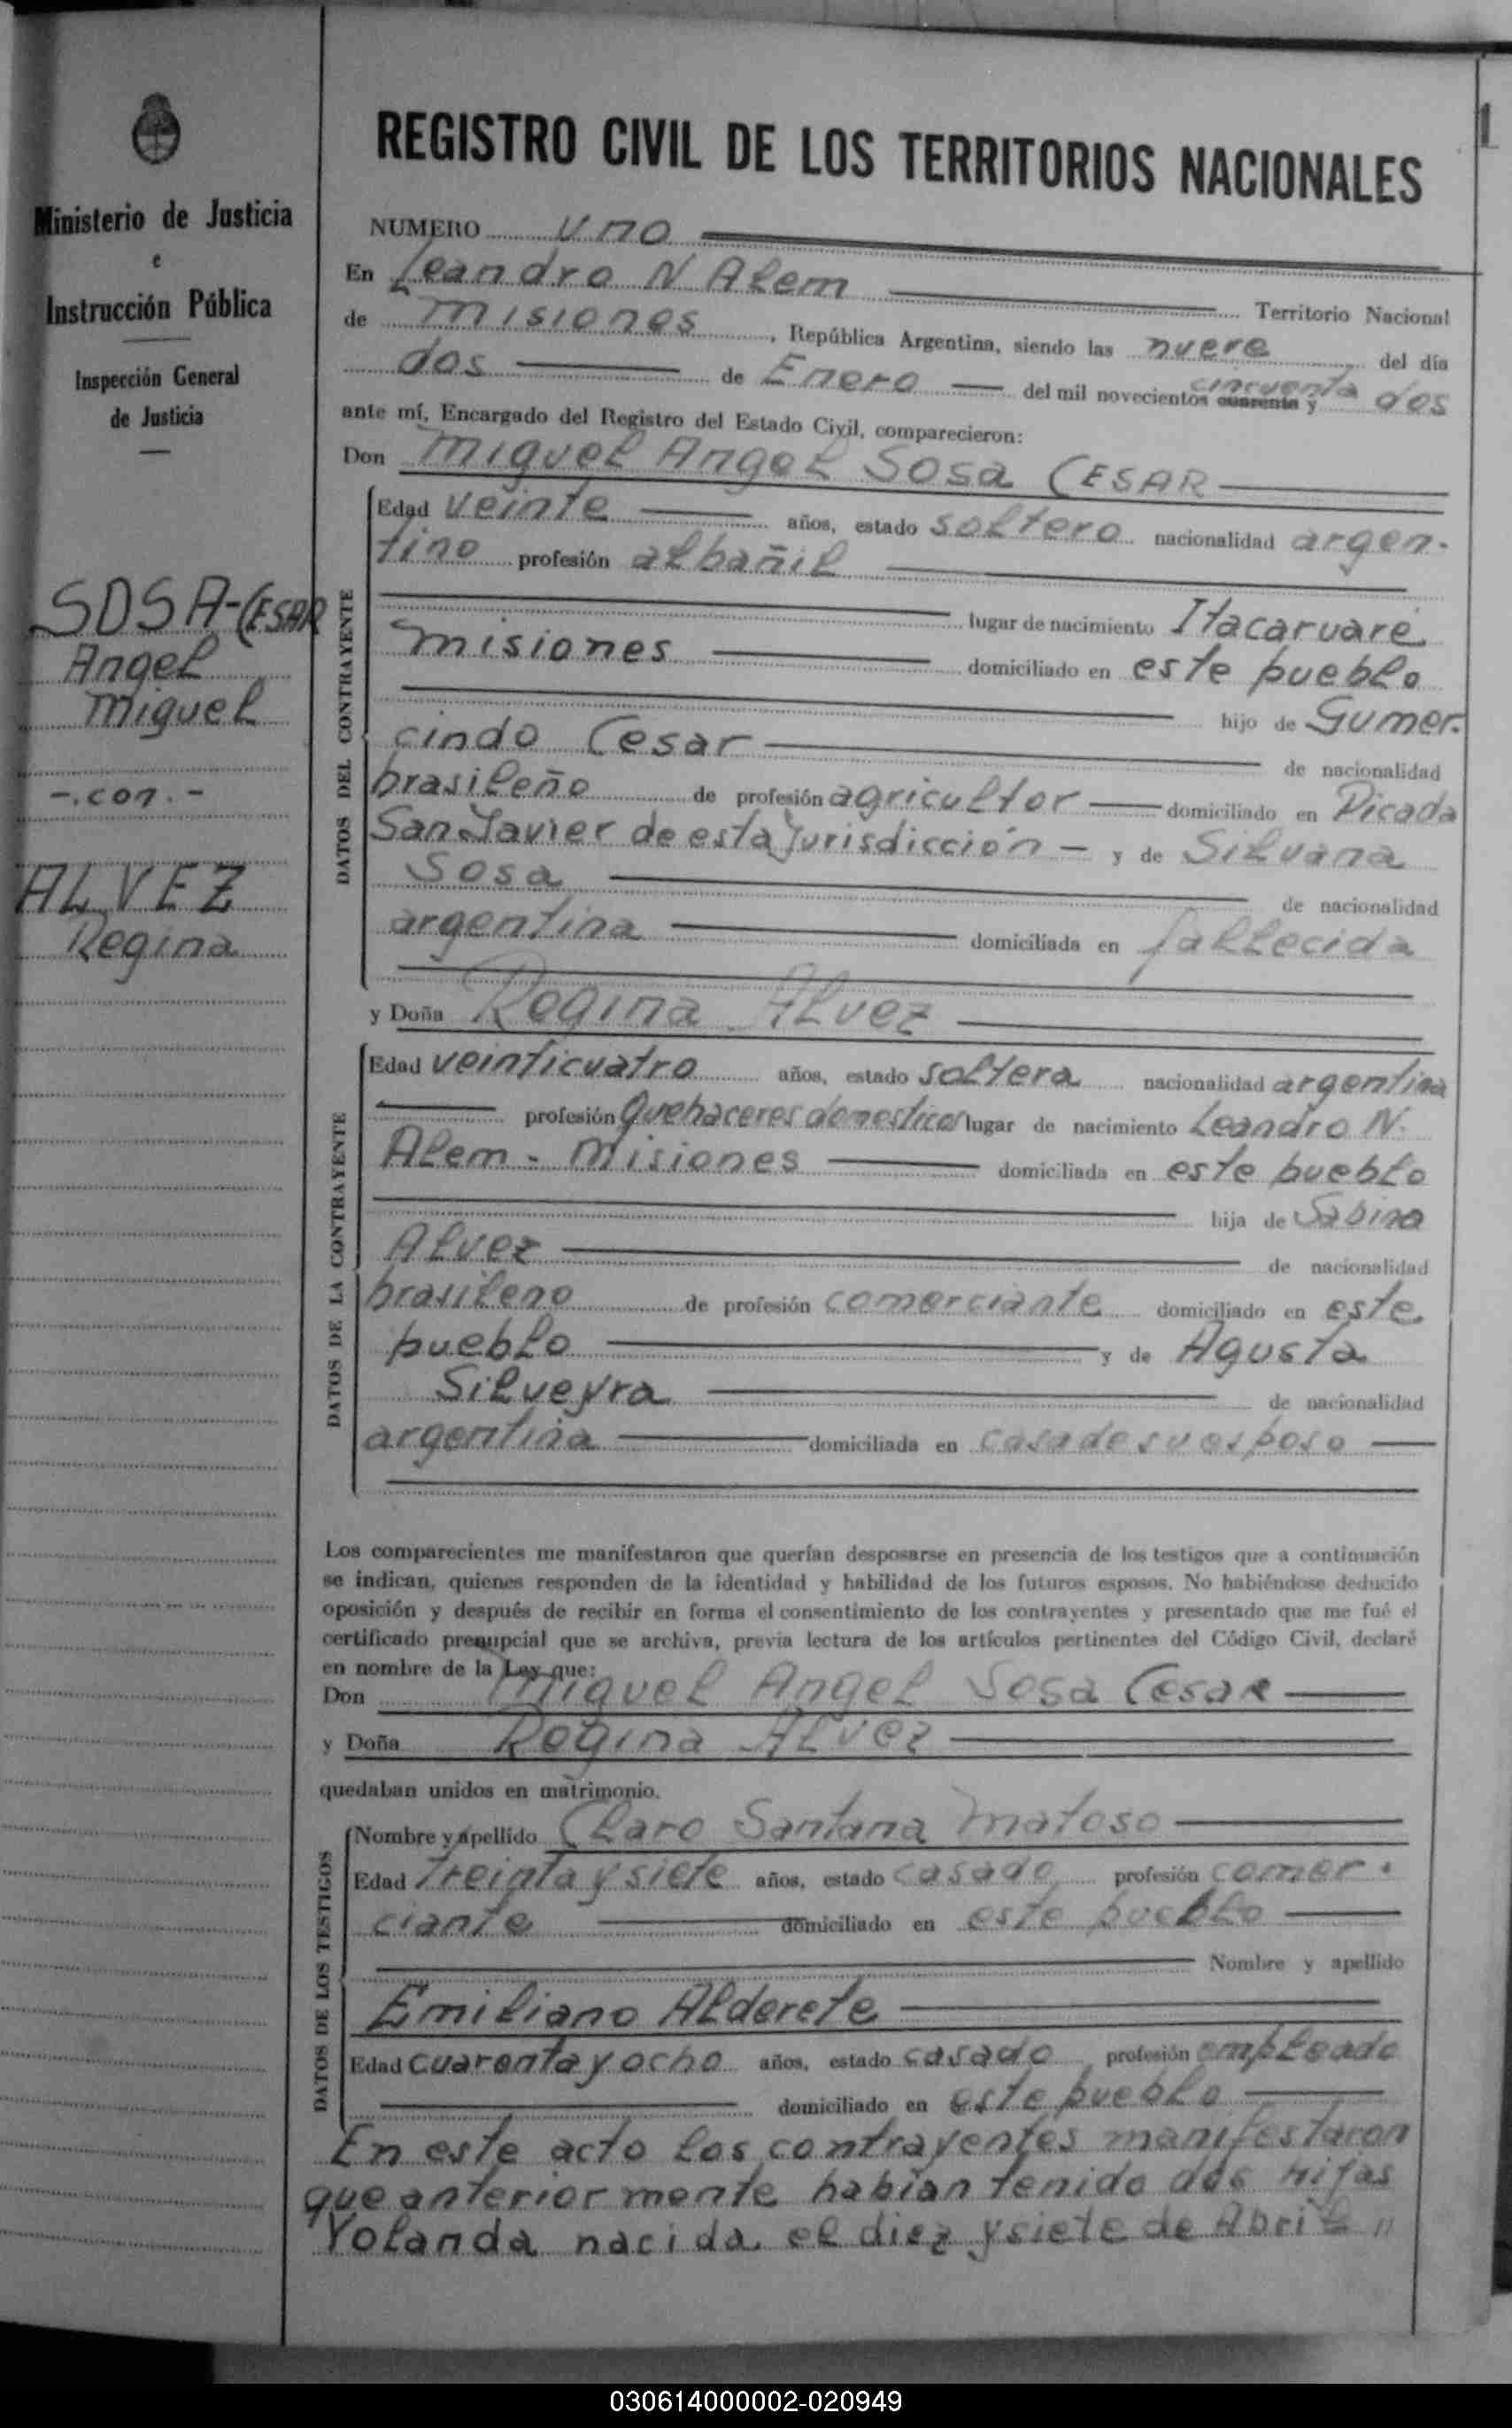 Ministerio de Justicia
e
Instrucción Pública
Inspección General
de Justicia
SOSA-CESAR
Angel
Miguel
-.con.-
ALVEZ
Regina
1
REGISTRO CIVIL DE LOS TERRITORIOS NACIONALES
NUMERO uno
En Leandro N Alem Territorio Nacional
de Misiones, República Argentina, siendo las nueve del día
dos de Enero del mil novecientos cuarenta y cincuenta dos
ante mí, Encargado del Registro del Estado Civil, comparecieron:
Don Miguel Angel Sosa CESAR
DATOS DEL CONTRAYENTE
Edad veinte años, estado soltero nacionalidad argen-
tino profesión albañil
lugar de nacimiento Itacaruaré
misiones domiciliado en este pueblo
hijo de Gumer-
cindo Cesar de nacionalidad
brasileño de profesión agricultor domiciliado en Picada
San Javier de esta Jurisdicción - y de Silvana
Sosa de nacionalidad
argentina domiciliada en fallecida
y Doña Regina Alvez
DATOS DE LA CONTRAYENTE
Edad veinticuatro años, estado soltera nacionalidad argentina
profesión Quehaceres domesticos lugar de nacimiento Leandro N.
Alem - Misiones domiciliada en este pueblo
hija de Sabino
Alvez de nacionalidad
brasileno de profesión comerciante domiciliado en este
pueblo y de Agusta
Silveyra de nacionalidad
argentina domiciliada en casa de su esposo
Los comparecientes me manifestaron que querían desposarse en presencia de los testigos que a continuación
se indican, quienes responden de la identidad y habilidad de los futuros esposos. No habiéndose deducido
oposición y después de recibir en forma el consentimiento de los contrayentes y presentado que me fué el
certificado prenupcial que se archiva, previa lectura de los artículos pertinentes del Código Civil, declaré
en nombre de la Ley que:
Don Miguel Angel Sosa Cesar
y Doña Regina Alvez
quedaban unidos en matrimonio.
DATOS DE LOS TESTIGOS
Nombre y apellido Claro Santana Matoso
Edad treinta y siete años, estado casado profesión comer-
ciante domiciliado en este pueblo
Nombre y apellido
Emiliano Alderete
Edad cuarenta y ocho años, estado casado profesión empleado
domiciliado en este pueblo
En este acto los contrayentes manifestaron
que anteriormente habían tenido dos hijas
Yolanda nacida el diez y siete de Abril "
030614000002-020949